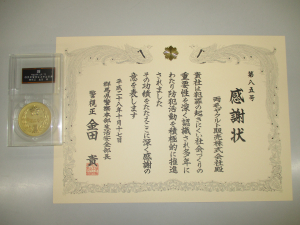 第八五号
感謝状
両毛ヤクルト販売株式会社殿
貴社は犯罪の起きにくい社会づくりの
重要性を深く認識され多年に
わたり防犯活動を積極的に推進
されました
その功績をたたえここに深く感謝の
意を表します
平成二十八年十月十七日
群馬県警察本部生活安全部長
警視正 金田貴